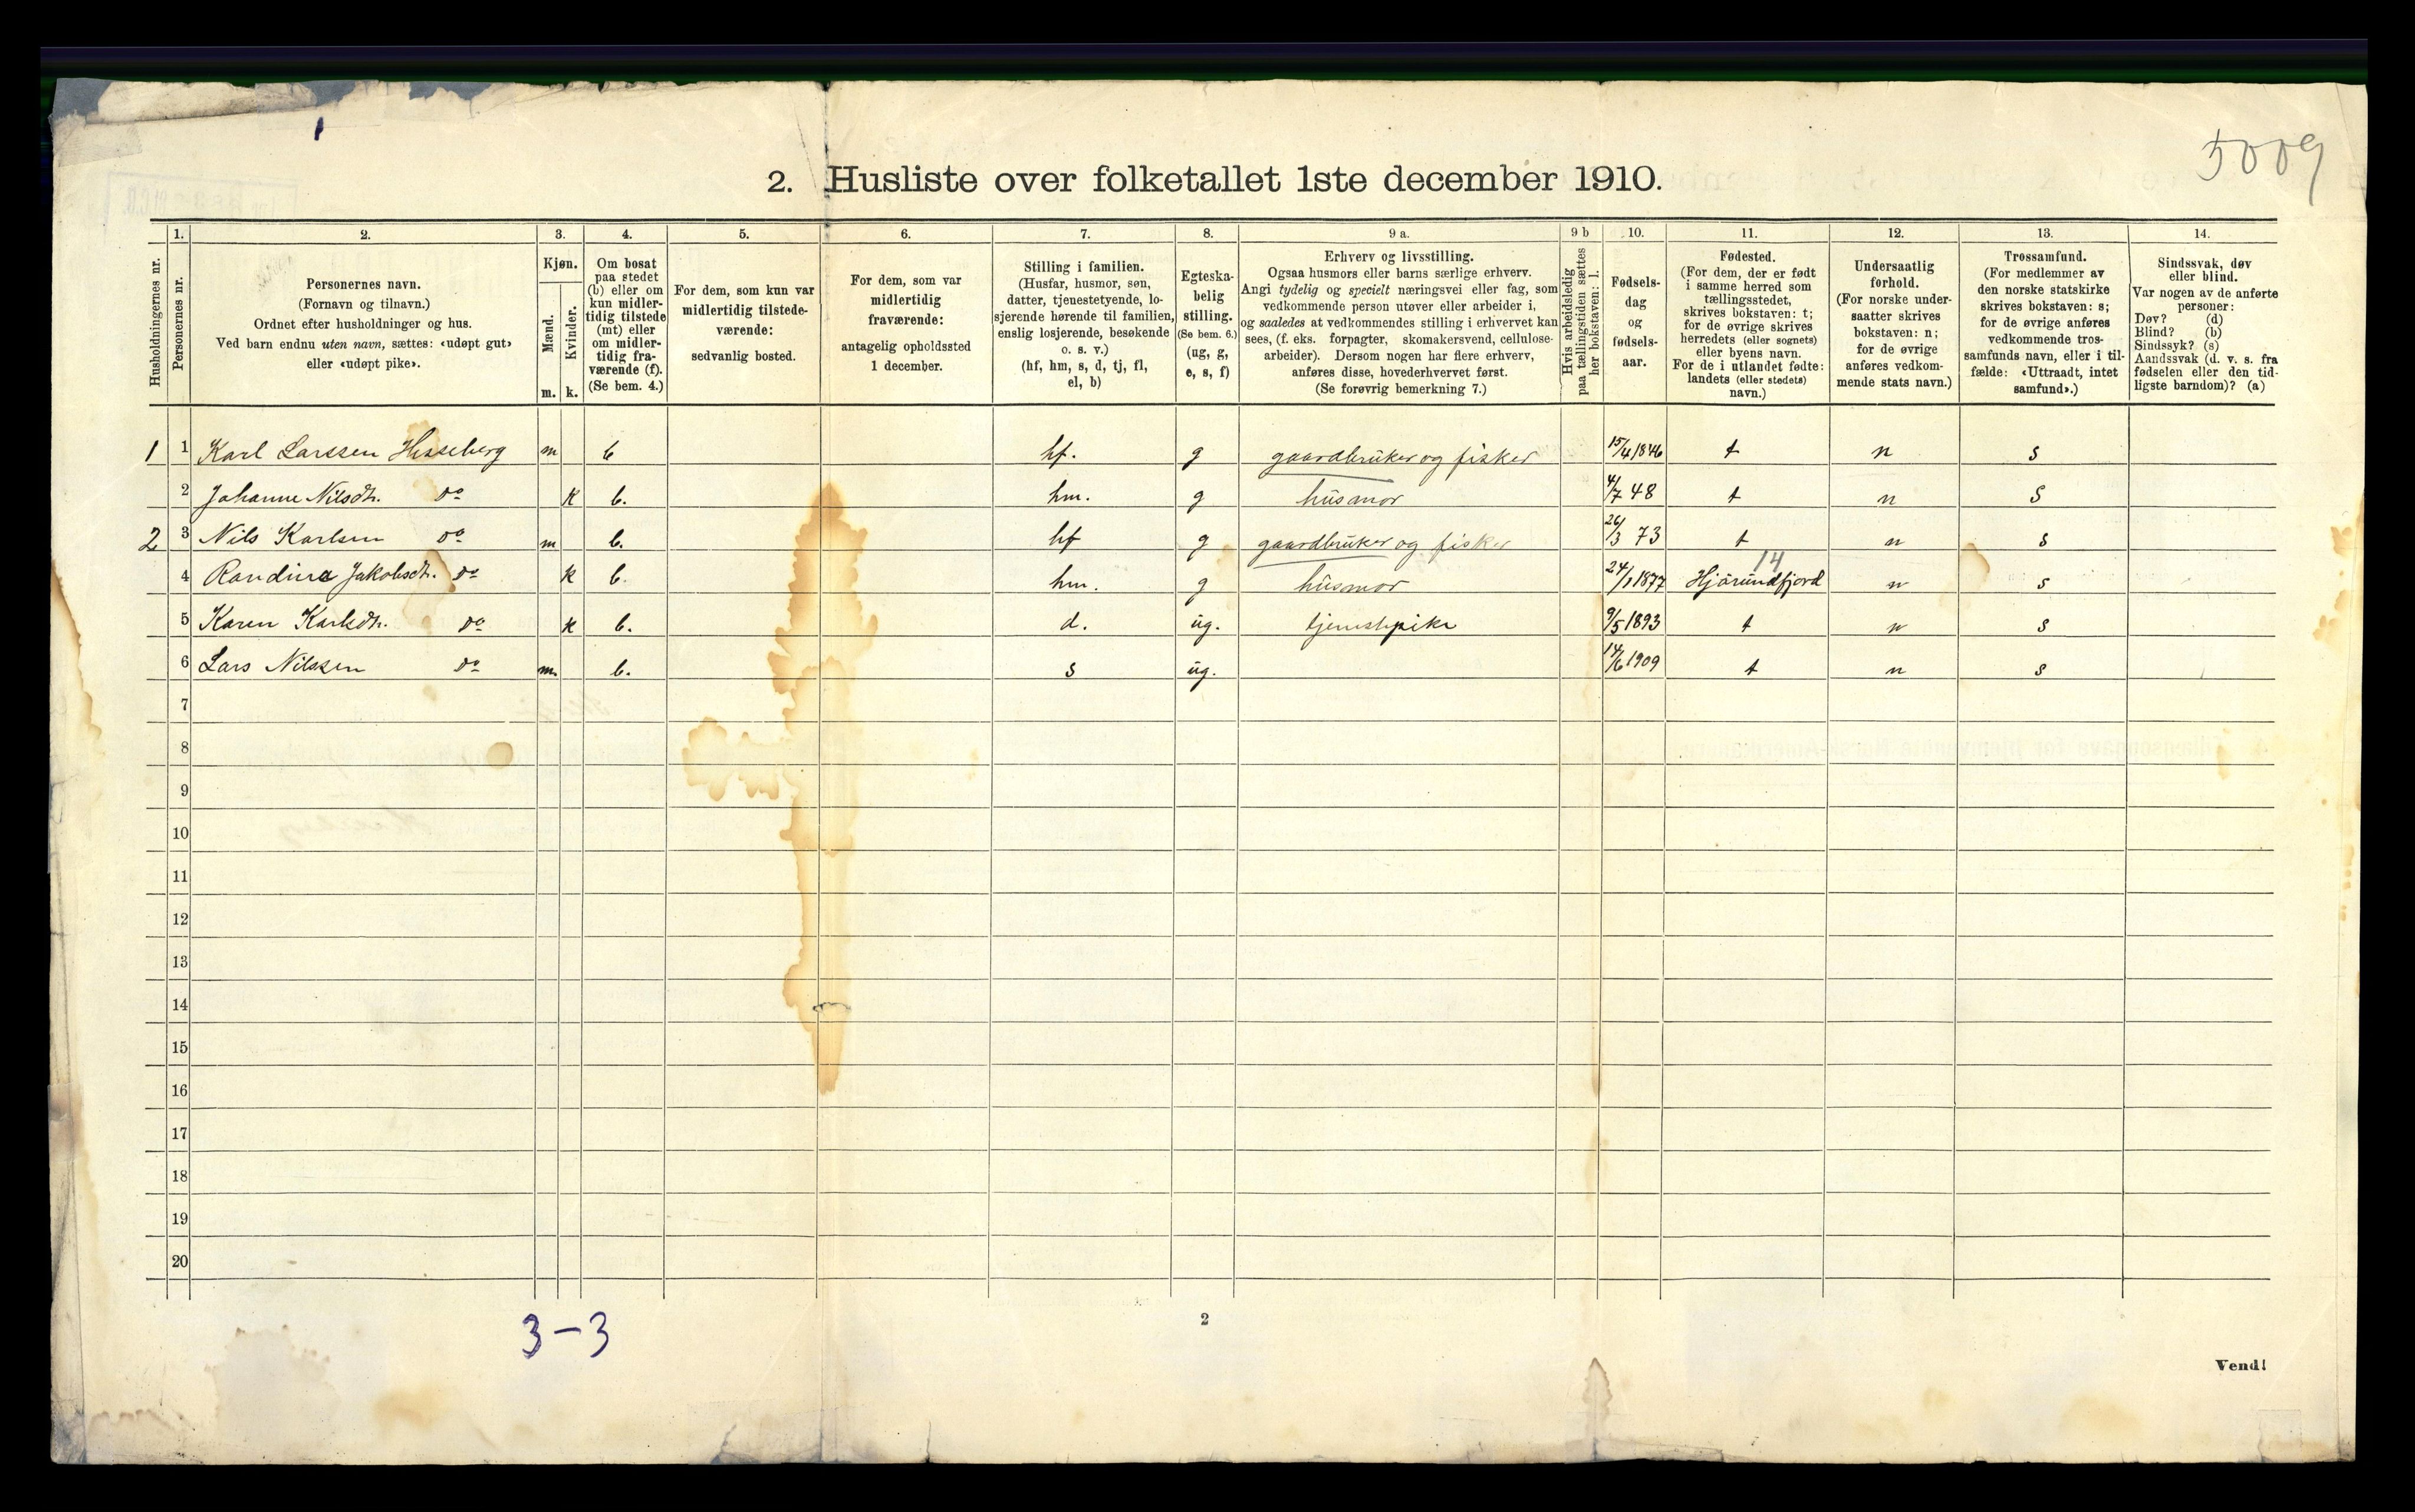 5009
2. Husliste over folketallet 1ste december 1910.
Husholdningernes nr.
1.
Personernes nr.
2.
Personernes navn.
(Fornavn og tilnavn.)
Ordnet efter husholdninger og hus.
Ved barn endnu uten navn, sættes: «udøpt gut»
eller «udøpt pike».
3.
Kjøn.
Mænd.
Kvinder.
m. k.
4.
Om bosat
paa stedet
(b) eller om
kun midler-
tidig tilstede
(mt) eller
om midler-
tidig fra-
værende (f).
(Se bem. 4.)
5.
For dem, som kun var
midlertidig tilstede-
værende:
sedvanlig bosted.
6.
For dem, som var
midlertidig
fraværende:
antagelig opholdssted
1 december.
7.
Stilling i familien.
(Husfar, husmor, søn,
datter, tjenestetyende, lo-
sjerende hørende til familien,
enslig losjerende, besøkende
o. s. v.)
(hf, hm, s, d, tj, fl,
el, b)
8.
Egteska-
belig
stilling.
(Se bem. 6.)
(ug, g,
e, s, f)
9 a.
Erhverv og livsstilling.
Ogsaa husmors eller barns særlige erhverv.
Angi tydelig og specielt næringsvei eller fag, som
vedkommende person utøver eller arbeider i,
og saaledes at vedkommendes stilling i erhvervet kan
sees, (f. eks. forpagter, skomakersvend, cellulose-
arbeider). Dersom nogen har flere erhverv,
anføres disse, hovederhvervet først.
(Se forøvrig bemerkning 7.)
9 b
Hvis arbeidsledig
paa tællingstiden sættes
her bokstaven: l.
10.
Fødsels-
dag
og
fødsels-
aar.
11.
Fødested.
(For dem, der er født
i samme herred som
tællingsstedet,
skrives bokstaven: t;
for de øvrige skrives
herredets (eller sognets)
eller byens navn.
For de i utlandet fødte:
landets (eller stedets)
navn.)
12.
Undersaatlig
forhold.
(For norske under-
saatter skrives
bokstaven: n;
for de øvrige
anføres vedkom-
mende stats navn.)
13.
Trossamfund.
(For medlemmer av
den norske statskirke
skrives bokstaven: s;
for de øvrige anføres
vedkommende tros-
samfunds navn, eller i til-
fælde: «Uttraadt, intet
samfund».)
14.
Sindssvak, døv
eller blind.
Var nogen av de anførte
personer:
Døv? (d)
Blind? (b)
Sindssyk? (s)
Aandssvak (d. v. s. fra
fødselen eller den tid-
ligste barndom)? (a)
1 1 Karl Larssen Hesseberg m b hf. g gaardbruker og fisker 15/4 1846 t n s
2 Johanne Nilsdtr. do k b. hm. g husmor 4/7 48 t n s
2 3 Nils Karlsen do m b. hf g gaardbruker og fisker 26/3 73 t n s
14
4 Randina Jakobsdtr. do k b. hm. g husmor 24/1 1877 Hjørundfjord n s
5 Karen Karlsdtr. do k b. d. ug. tjenestepike 9/5 1893 t n s
6 Lars Nilssen do m. b. s ug. 14/6 1909 t n s
7
8
9
10
11
12
13
14
15
16
17
18
19
20
3-3
2
Vend!